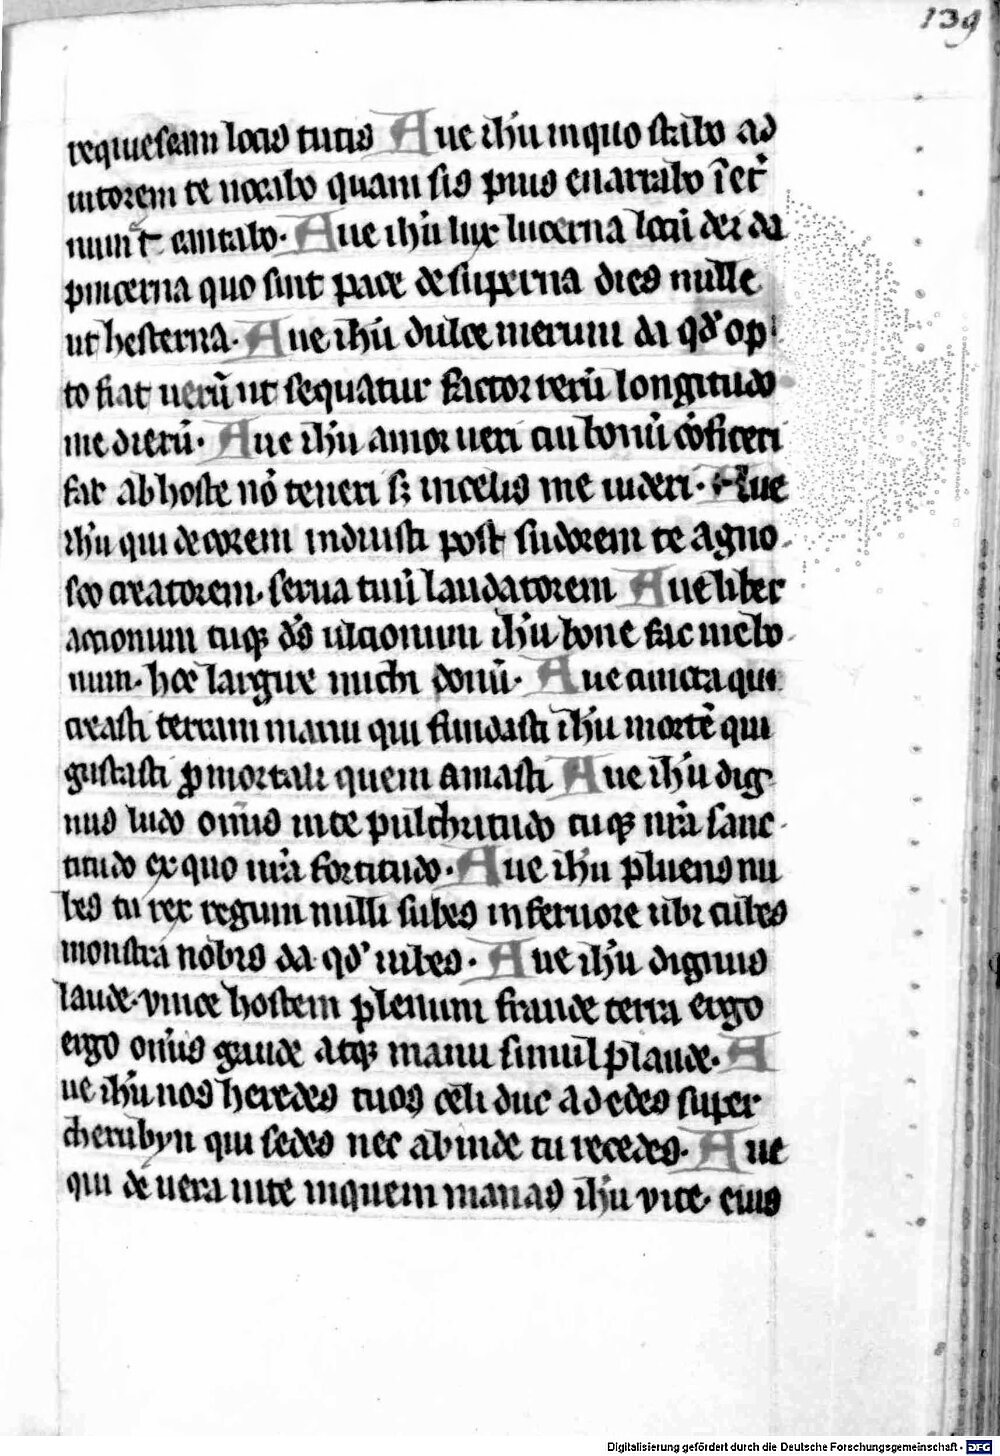 139
requiescam locis tutis Aue ihū in quo stabo ad
iutorem te uocabo quam sis pius enarrabo ī et̄
num t̄ cantabo. Aue ihū lux lucerna locū dei da
pincerna quo sint pace de superna dies nulle
ut hesterna. Aue ihū dulce merum da qd̄ op
to fiat uerū ut sequatur factor rerū longitudo
me dierū. Aue ihū amor ueri cui bonū cōfiteri
fac ab hoste nō teneri sꝫ in celis me uideri. Aue
ihū qui decorem induisti post sudorem te agno
sco creatorem. serua tuū laudatorem Aue liber
accionum tuqꝫ ds̄ ulcionum ihū bone fac me bo
num. hoc largire michi donū. Aue cuncta qui
creasti terram manu qui fundasti ihū mortē qui
gustasti ꝓ mortali quem amasti Aue ihū dig
nus ludo om̄is in te pulchritudo tuqꝫ nr̄a sanc
titudo ex quo nr̄a fortitudo. Aue ihū pluens nu
bes tu rex regum nulli subes in feruore ubi cubes
monstra nobis da qd̄ iubes. Aue ihū dignus
laude. vince hostem plenum fraude terra ergo
ergo om̄is gaude atqꝫ manu simul plaude. A
ue ihū nos heredes tuos celi duc ad edes super
cherubyn qui sedes nec abinde tu recedes. Aue
qui de uera uite in quem manas ihū vite. eius
Digitalisierung gefördert durch die Deutsche Forschungsgemeinschaft - DFG